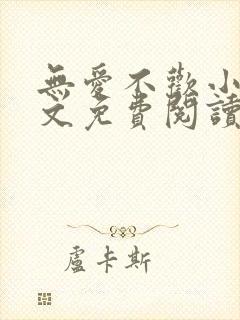 無愛不歡小
文免費閱讀
盧卡斯